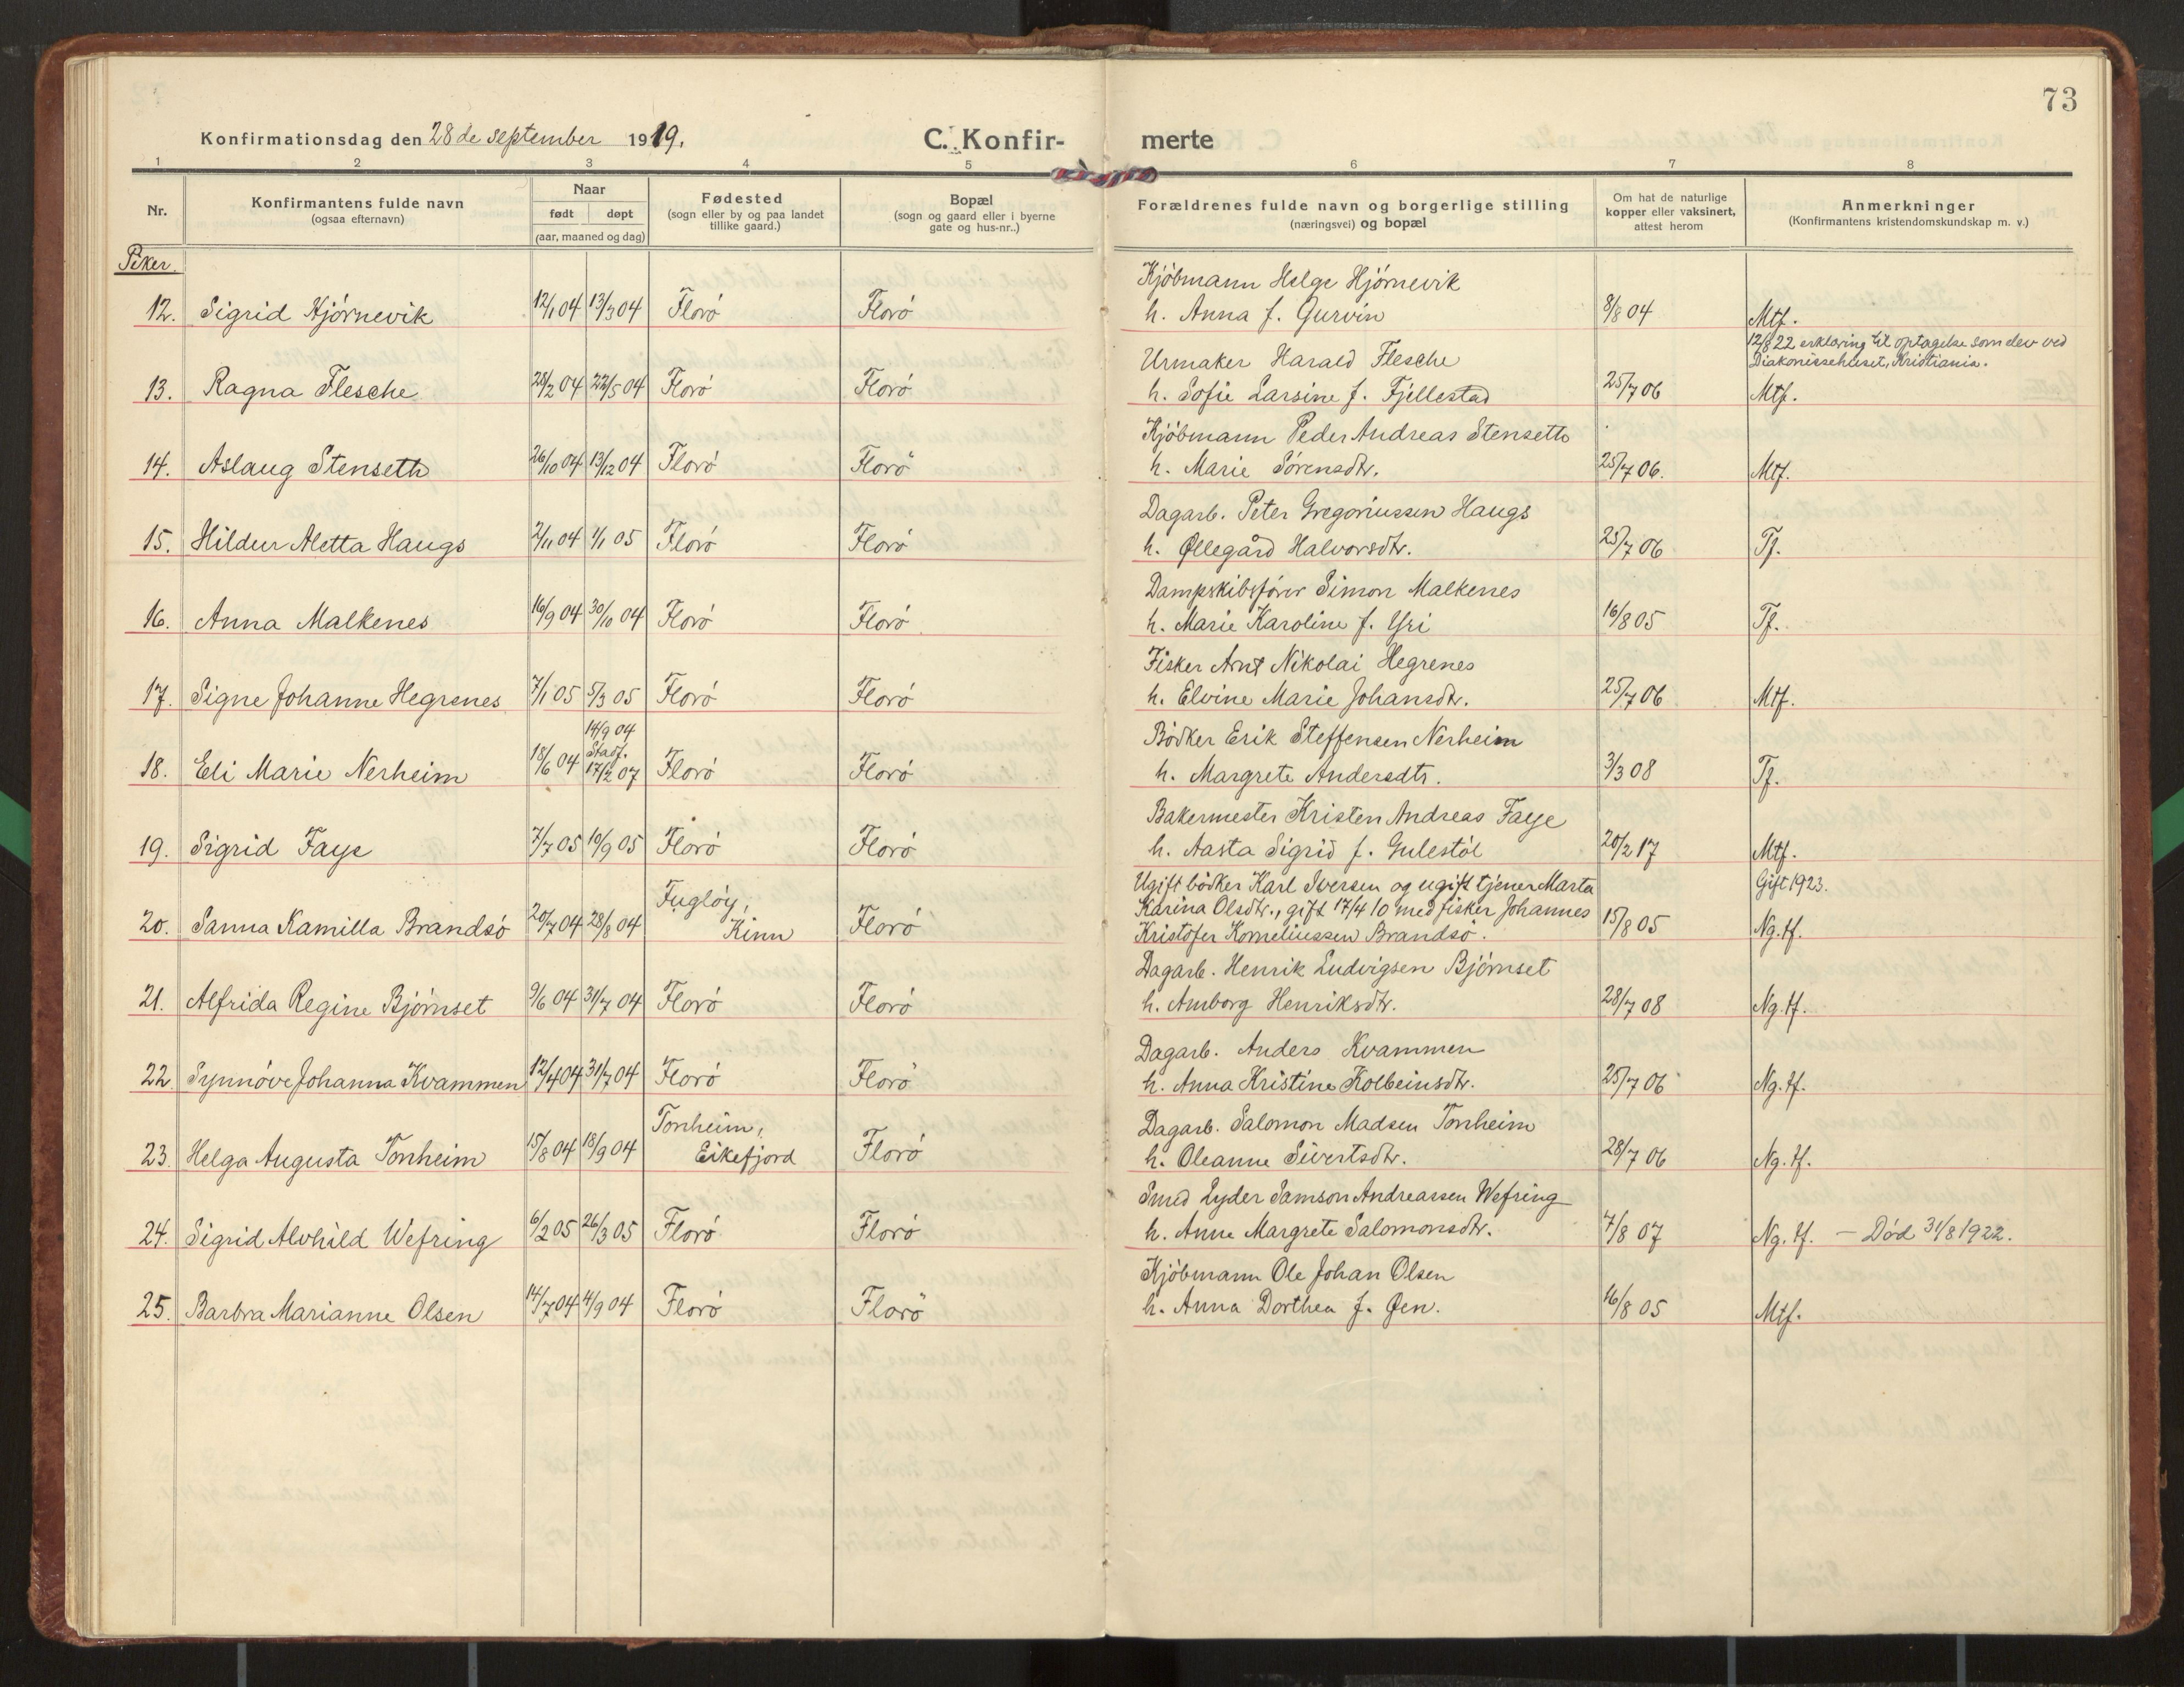 73
Konfirmationsdag den 28de september 1919.
C. Konfir- merte
1 2 3 4 5 6 7 8
Nr.
Konfirmantens fulde navn
(ogsaa efternavn)
Naar
født døpt
(aar, maaned og dag)
Fødested
(sogn eller by og paa landet
tillike gaard.)
Bopæl
(sogn og gaard eller i byerne
gate og hus-nr..)
Forældrenes fulde navn og borgerlige stilling
(næringsvei) og bopæl
Om hat de naturlige
kopper eller vaksinert,
attest herom
Anmerkninger
(Konfirmantens kristendomskundskap m. v.)
Piker.
Kjöbmann Helge Hjørnevik
12. Sigrid Hjørnevik 12/1 04 13/3 04 Florø Florø h. Anna f. Gurvin 8/8 04 Mtf.
12/8 22 erklæring til optagelse som elev ved
Diakonissehuset, Kristiania.
Urmaker Harald Flesche
13. Ragna Flesche 28/2 04 22/5 04 Florø Florø h. Sofie Larsine f. Fjellestad 25/7 06 Mtf.
Kjöbmann Peder Andreas Stenseth
14. Aslaug Stenseth 26/10 04 13/12 04 Florø Florø h. Marie Sørensdtr. 25/7 06. Mtf.
Dagarb. Peter Gregoriussen Haugs
15. Hildur Aletta Haugs 2/11 04 1/1 05 Florø Florø h. Øllegård Halvorsdtr. 25/7 06 Tf.
Dampskibsfører Simon Malkenes
16. Anna Malkenes 16/9 04 30/10 04 Florø Florø h. Marie Karoline f. Yri 16/8 05 Tf.
Fisker Arnt Nikolai Hegrenes
17. Signe Johanne Hegrenes 7/1 05 5/3 05 Florø Florø h. Elvine Marie Johansdtr. 25/7 06 Mtf.
14/9 04
Stadf. Bødker Erik Steffensen Nerheim
18. Eli Marie Nerheim 18/6 04 17/2 07 Florø Florø h. Margrete Andersdtr. 3/3 08 Tf.
Bakermester Kristen Andreas Faye
19. Sigrid Faye 7/7 05 10/9 05 Florø Florø h. Aasta Sigrid f. Gulestøl 20/2 17 Mtf.
Ugift bødker Karl Iversen og ugift tjener Marta Gift 1923.
Fugløy, Karina Olsdtr., gift 17/4 10 med fisker Johannes
20. Sanna Kamilla Brandsø 20/7 04 28/8 04 Kinn Florø Kristofer Korneliussen Brandsø. 15/8 05 Ng. tf.
Dagarb. Henrik Ludvigsen Bjørnset
21. Alfrida Regine Bjørnset 9/6 04 31/7 04 Florø Florø h. Amborg Henriksdtr. 28/7 08 Ng. tf.
Dagarb. Anders Kvammen
22. Synnøve Johanna Kvammen 12/4 04 31/7 04 Florø Florø h. Anna Kristine Kolbeinsdtr. 25/7 06 Ng. tf.
Tonheim, Dagarb. Salomon Madsen Tonheim
23. Helga Augusta Tonheim 15/8 04 18/9 04 Eikefjord Florø h. Oleanne Sivertsdtr. 28/7 06 Ng. tf.
Smed Lyder Samson Andreassen Wefring
24. Sigrid Alvhild Wefring 6/2 05 26/3 05 Florø Florø h. Anne Margrete Salomonsdtr. 7/8 07 Ng. tf. – Död 31/8 1922.
Kjöbmann Ole Johan Olsen
25. Barbra Marianne Olsen 14/7 04 4/9 04 Florø Florø h. Anna Dorthea f. Øen. 16/8 05 Mtf.